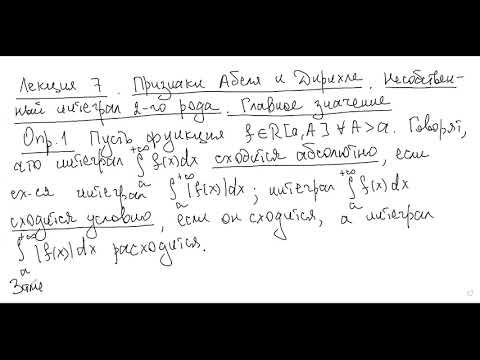 Лекция 7. Признаки Абеля и Дирихле. Несобствен-
ный интеграл 2-го рода. Главное значение
Опр.1 Пусть функция f∈R[a,A] ∀A>a. Говорят,
что интеграл ∫ₐ^{+∞} f(x)dx сходится абсолютно, если
сх-ся интеграл ∫ₐ^{+∞} |f(x)|dx; интеграл ∫ₐ^{+∞} f(x)dx
сходится условно, если он сходится, а интеграл
∫ₐ^{+∞} |f(x)|dx расходится.
Заме